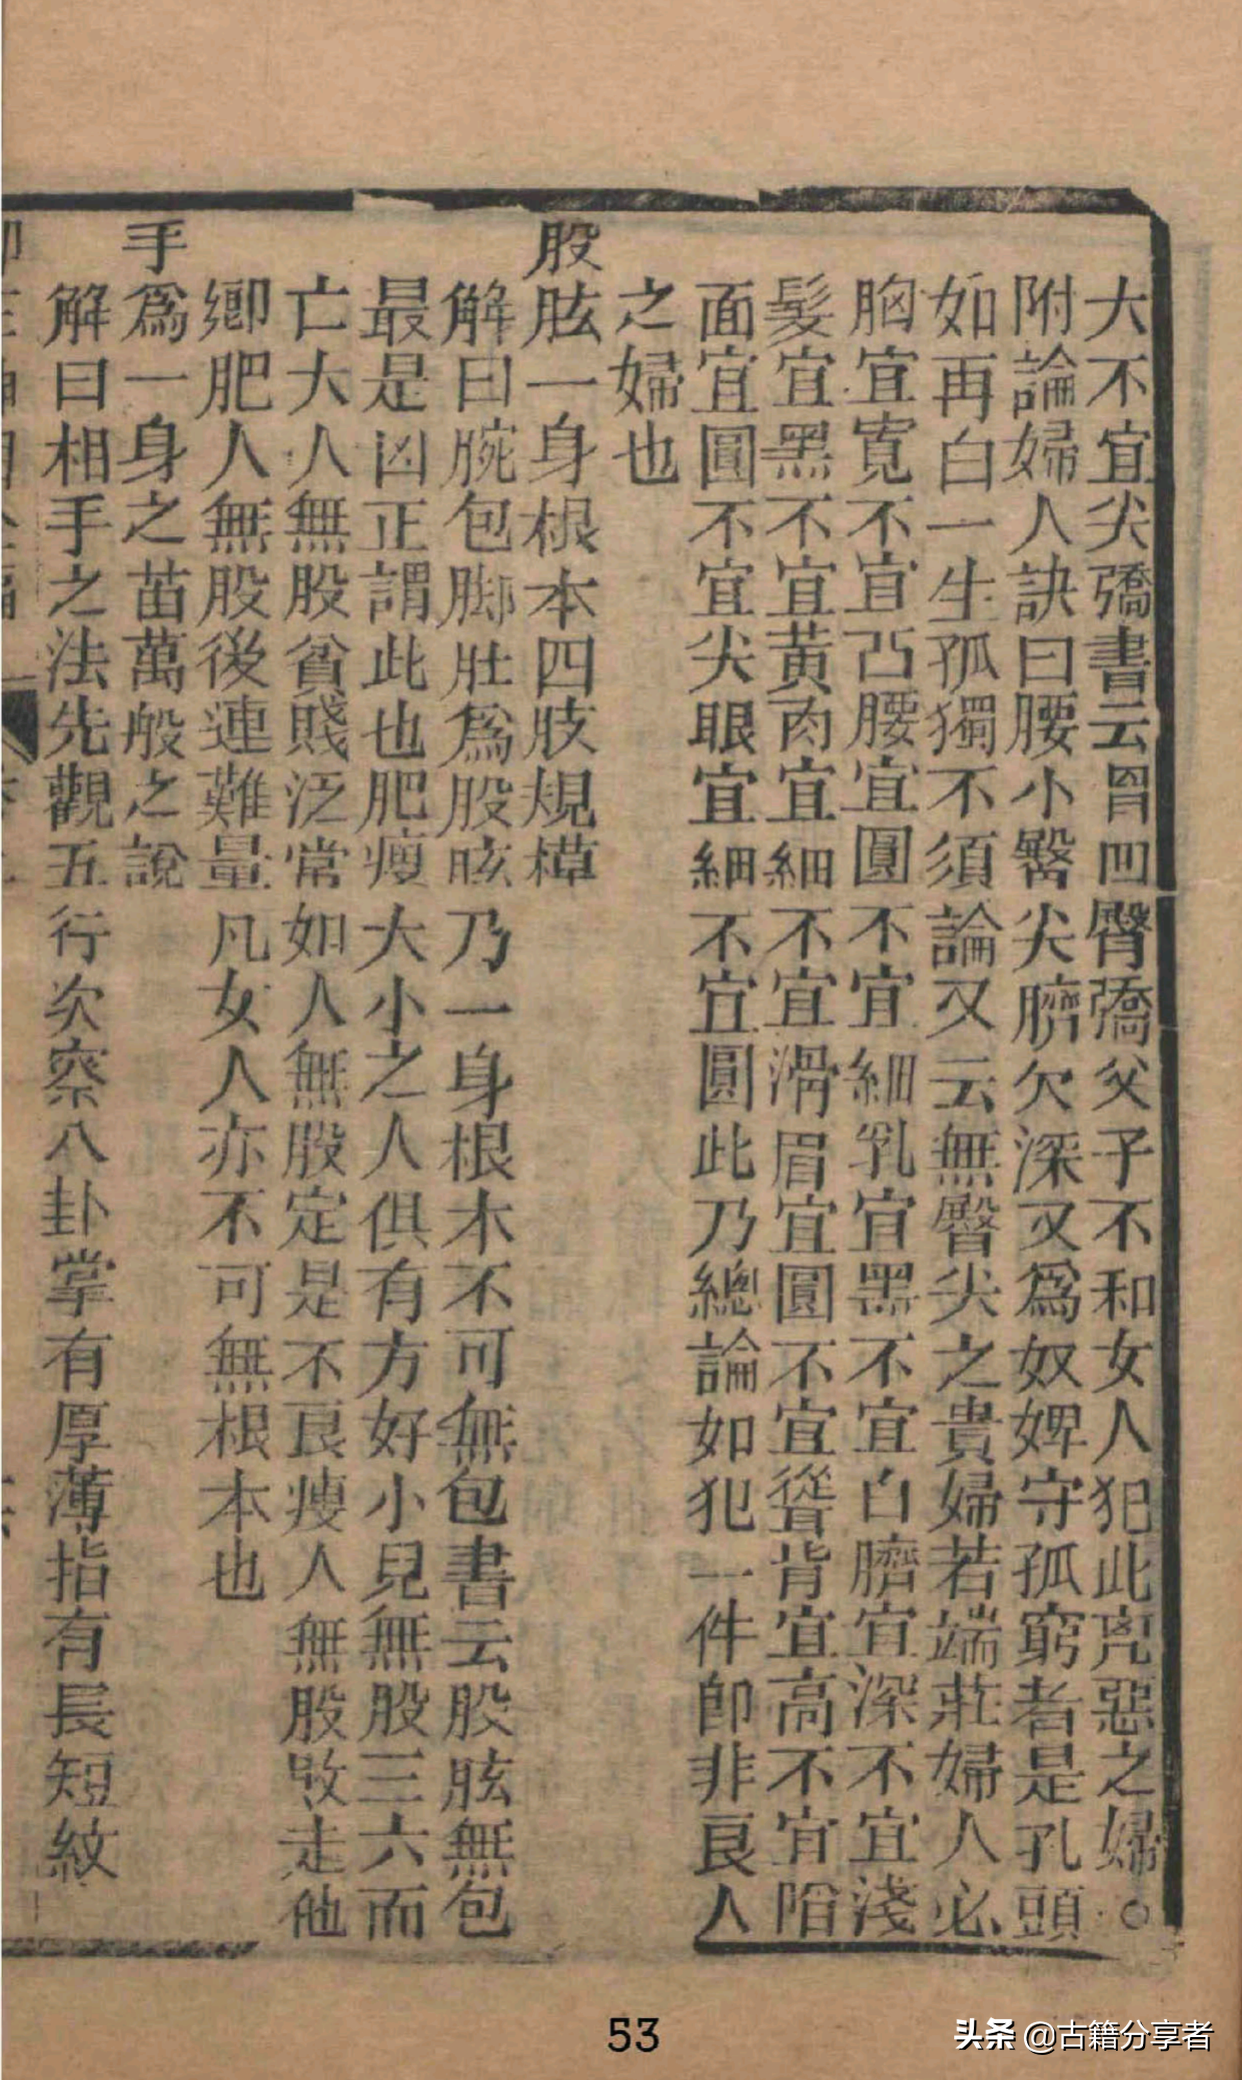 大不宜尖䯪書云胷凹臀䯪父子不和女人犯此兇惡之婦○
附論婦人訣曰腰小臀尖臍欠深又爲奴婢守孤窮者是孔頭
如再白一生孤獨不須論又云無臀尖之貴婦若端莊婦人必
胸宜寬不宜凸腰宜圓不宜細乳宜黑不宜白臍宜深不宜淺
髮宜黑不宜黃肉宜細不宜滑眉宜圓不宜聳背宜高不宜陷
面宜圓不宜尖眼宜細不宜圓此乃總論如犯一件卽非良人
之婦也
股肱一身根本四肢規模
解曰腕包脚肚爲股肱乃一身根本不可無包書云股肱無包
最是凶正謂此也肥瘦大小之人俱有方好小兒無股三六而
亡大人無股貧賤泛常如人無股定是不良瘦人無股敗走他
鄉肥人無股後連難量凡女人亦不可無根本也
手爲一身之苗萬般之說
解曰相手之法先觀五行次察八卦掌有厚薄指有長短紋
53
头条 @古籍分享者